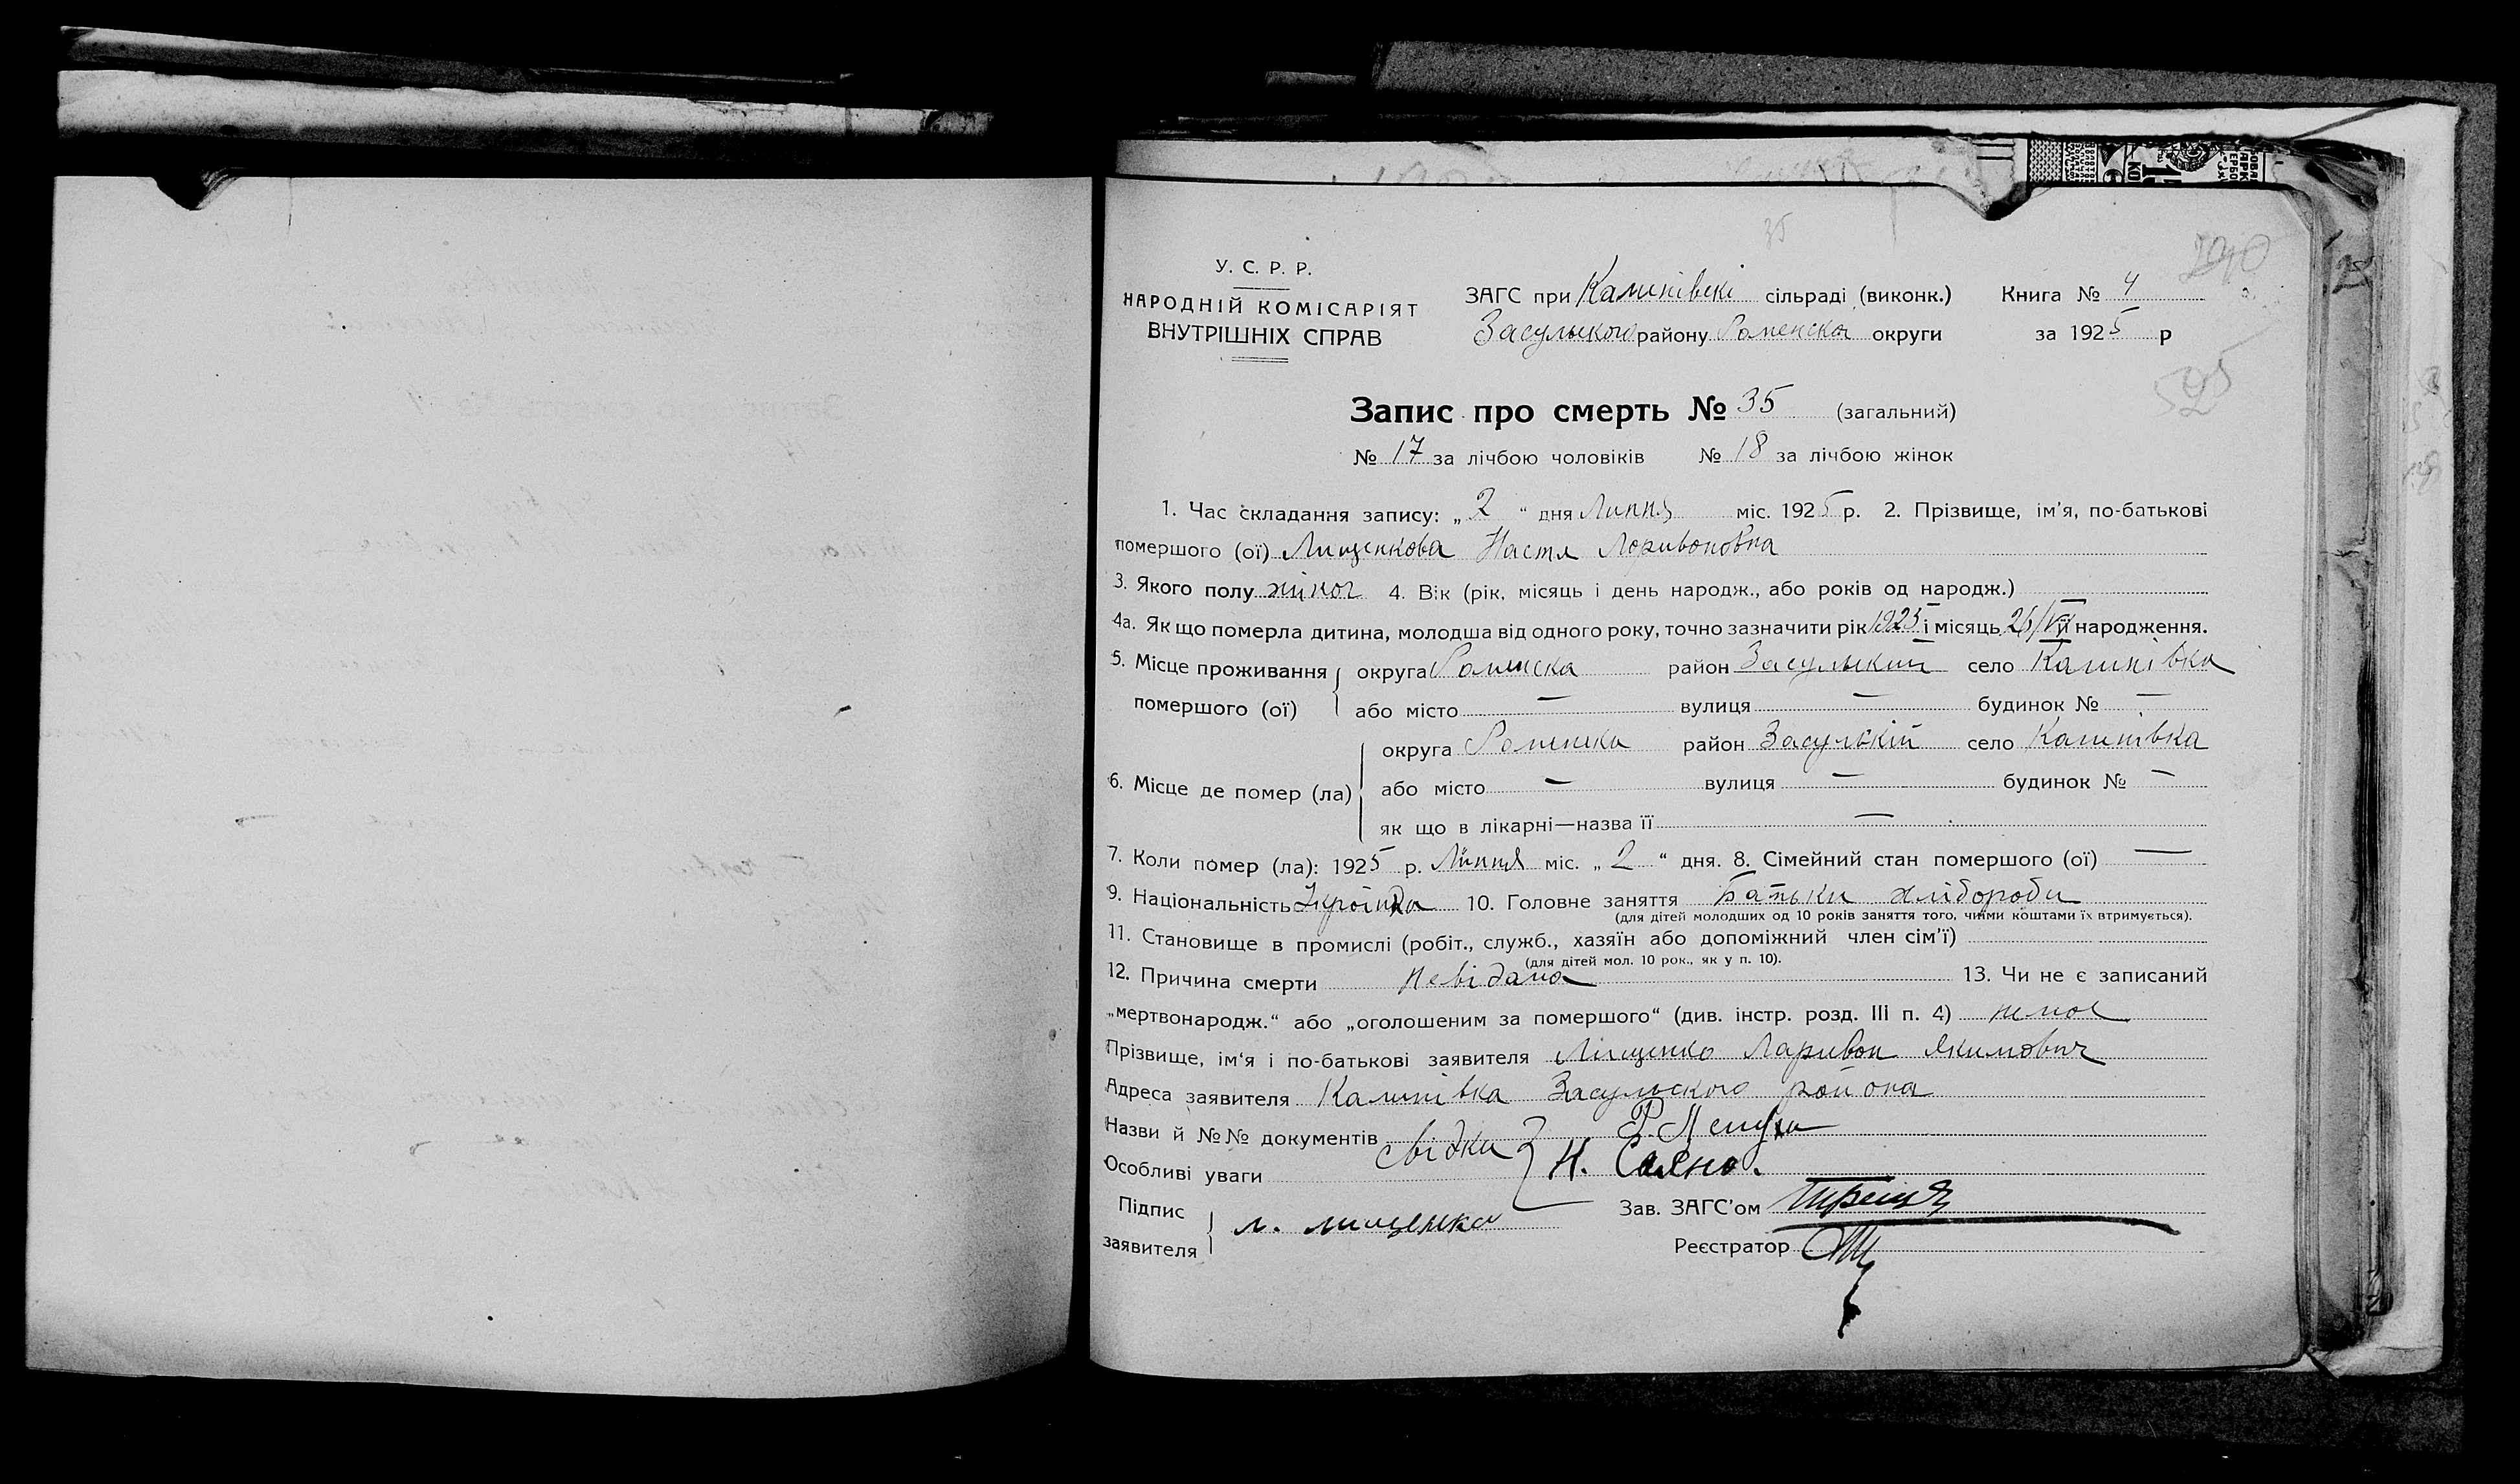 35
У. С. Р. Р.
НАРОДНІЙ КОМІСАРІЯТ
ВНУТРІШНІХ СПРАВ
ЗАГС при Калинівскі сільраді (виконк.)
Засульского району Роменска округи
Книга № 4
за 1925 р
525
Запис про смерть № 35 (загальний)
№ 17 за лічбою чоловіків № 18 за лічбою жінок
1. Час складання запису: „ 2 “ дня Липня міс. 1925 р. 2. Прізвище, ім'я, по-батькові
помершого (ої) Лищенкова Настя Лоривоновна
3. Якого полу жіноч 4. Вік (рік, місяць і день народж., або років од народж.)
4а. Як що померла дитина, молодша від одного року, точно зазначити рік 1925 і місяць 26/ її народження.
5. Місце проживання помершого (ої) округа Роменска район Засульский село Калинівка
або місто — вулиця — будинок № —
6. Місце де помер (ла) округа Роменска район Засулскій село Калинівка
або місто — вулиця — будинок № —
як що в лікарні—назва її —
7. Коли помер (ла): 1925 р. Липня міс. „ 2 “ дня. 8. Сімейний стан помершого (ої) —
9. Національність Украінка 10. Головне заняття Батьки хлібороби
(для дітей молодших од 10 років заняття того, чиїми коштами їх втримується).
11. Становище в промислі (робіт., служб., хазяїн або допоміжний член сім'ї)
(для дітей мол. 10 рок., як у п. 10).
12. Причина смерти Невідама 13. Чи не є записаний
„мертвонародж.“ або „оголошеним за помершого“ (див. інстр. розд. III п. 4)
Прізвище, ім'я і по-батькові заявителя Лищенко Ларивон Якимович
Адреса заявителя Калинівка Засульского район она
Назви й №№ документів
Особливі уваги свідки Н. Саєно.
Підпис заявителя л. лищенко
Зав. ЗАГС'ом
Реєстратор